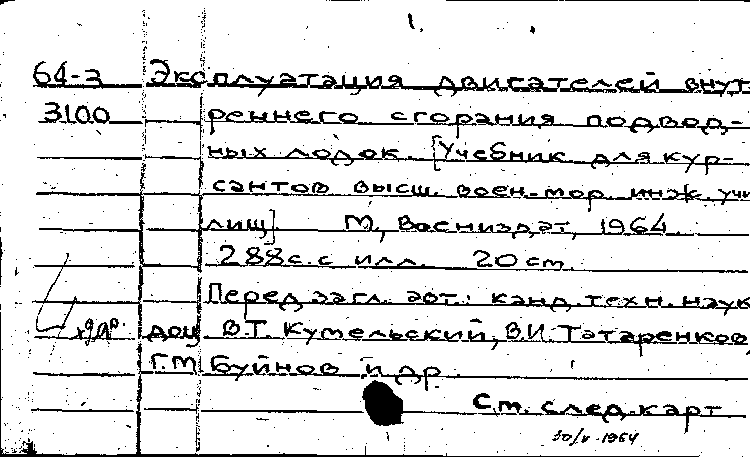 1.
64-3 Эксплуатация двигателей внут
3100 реннего сгорания подвод-
ных лодок. [Учебник для кур-
сантов высш. воен.-мор. инж. учи
лищ] М., Воениздат, 1964.
288 с. с илл. 20 см.
Перед загл. авт.: канд. техн. наук
доц В.Т. Кутельский, В.И. Татаренков,
Г.М Буйнов и др.
См. след. карт
30/V-1964